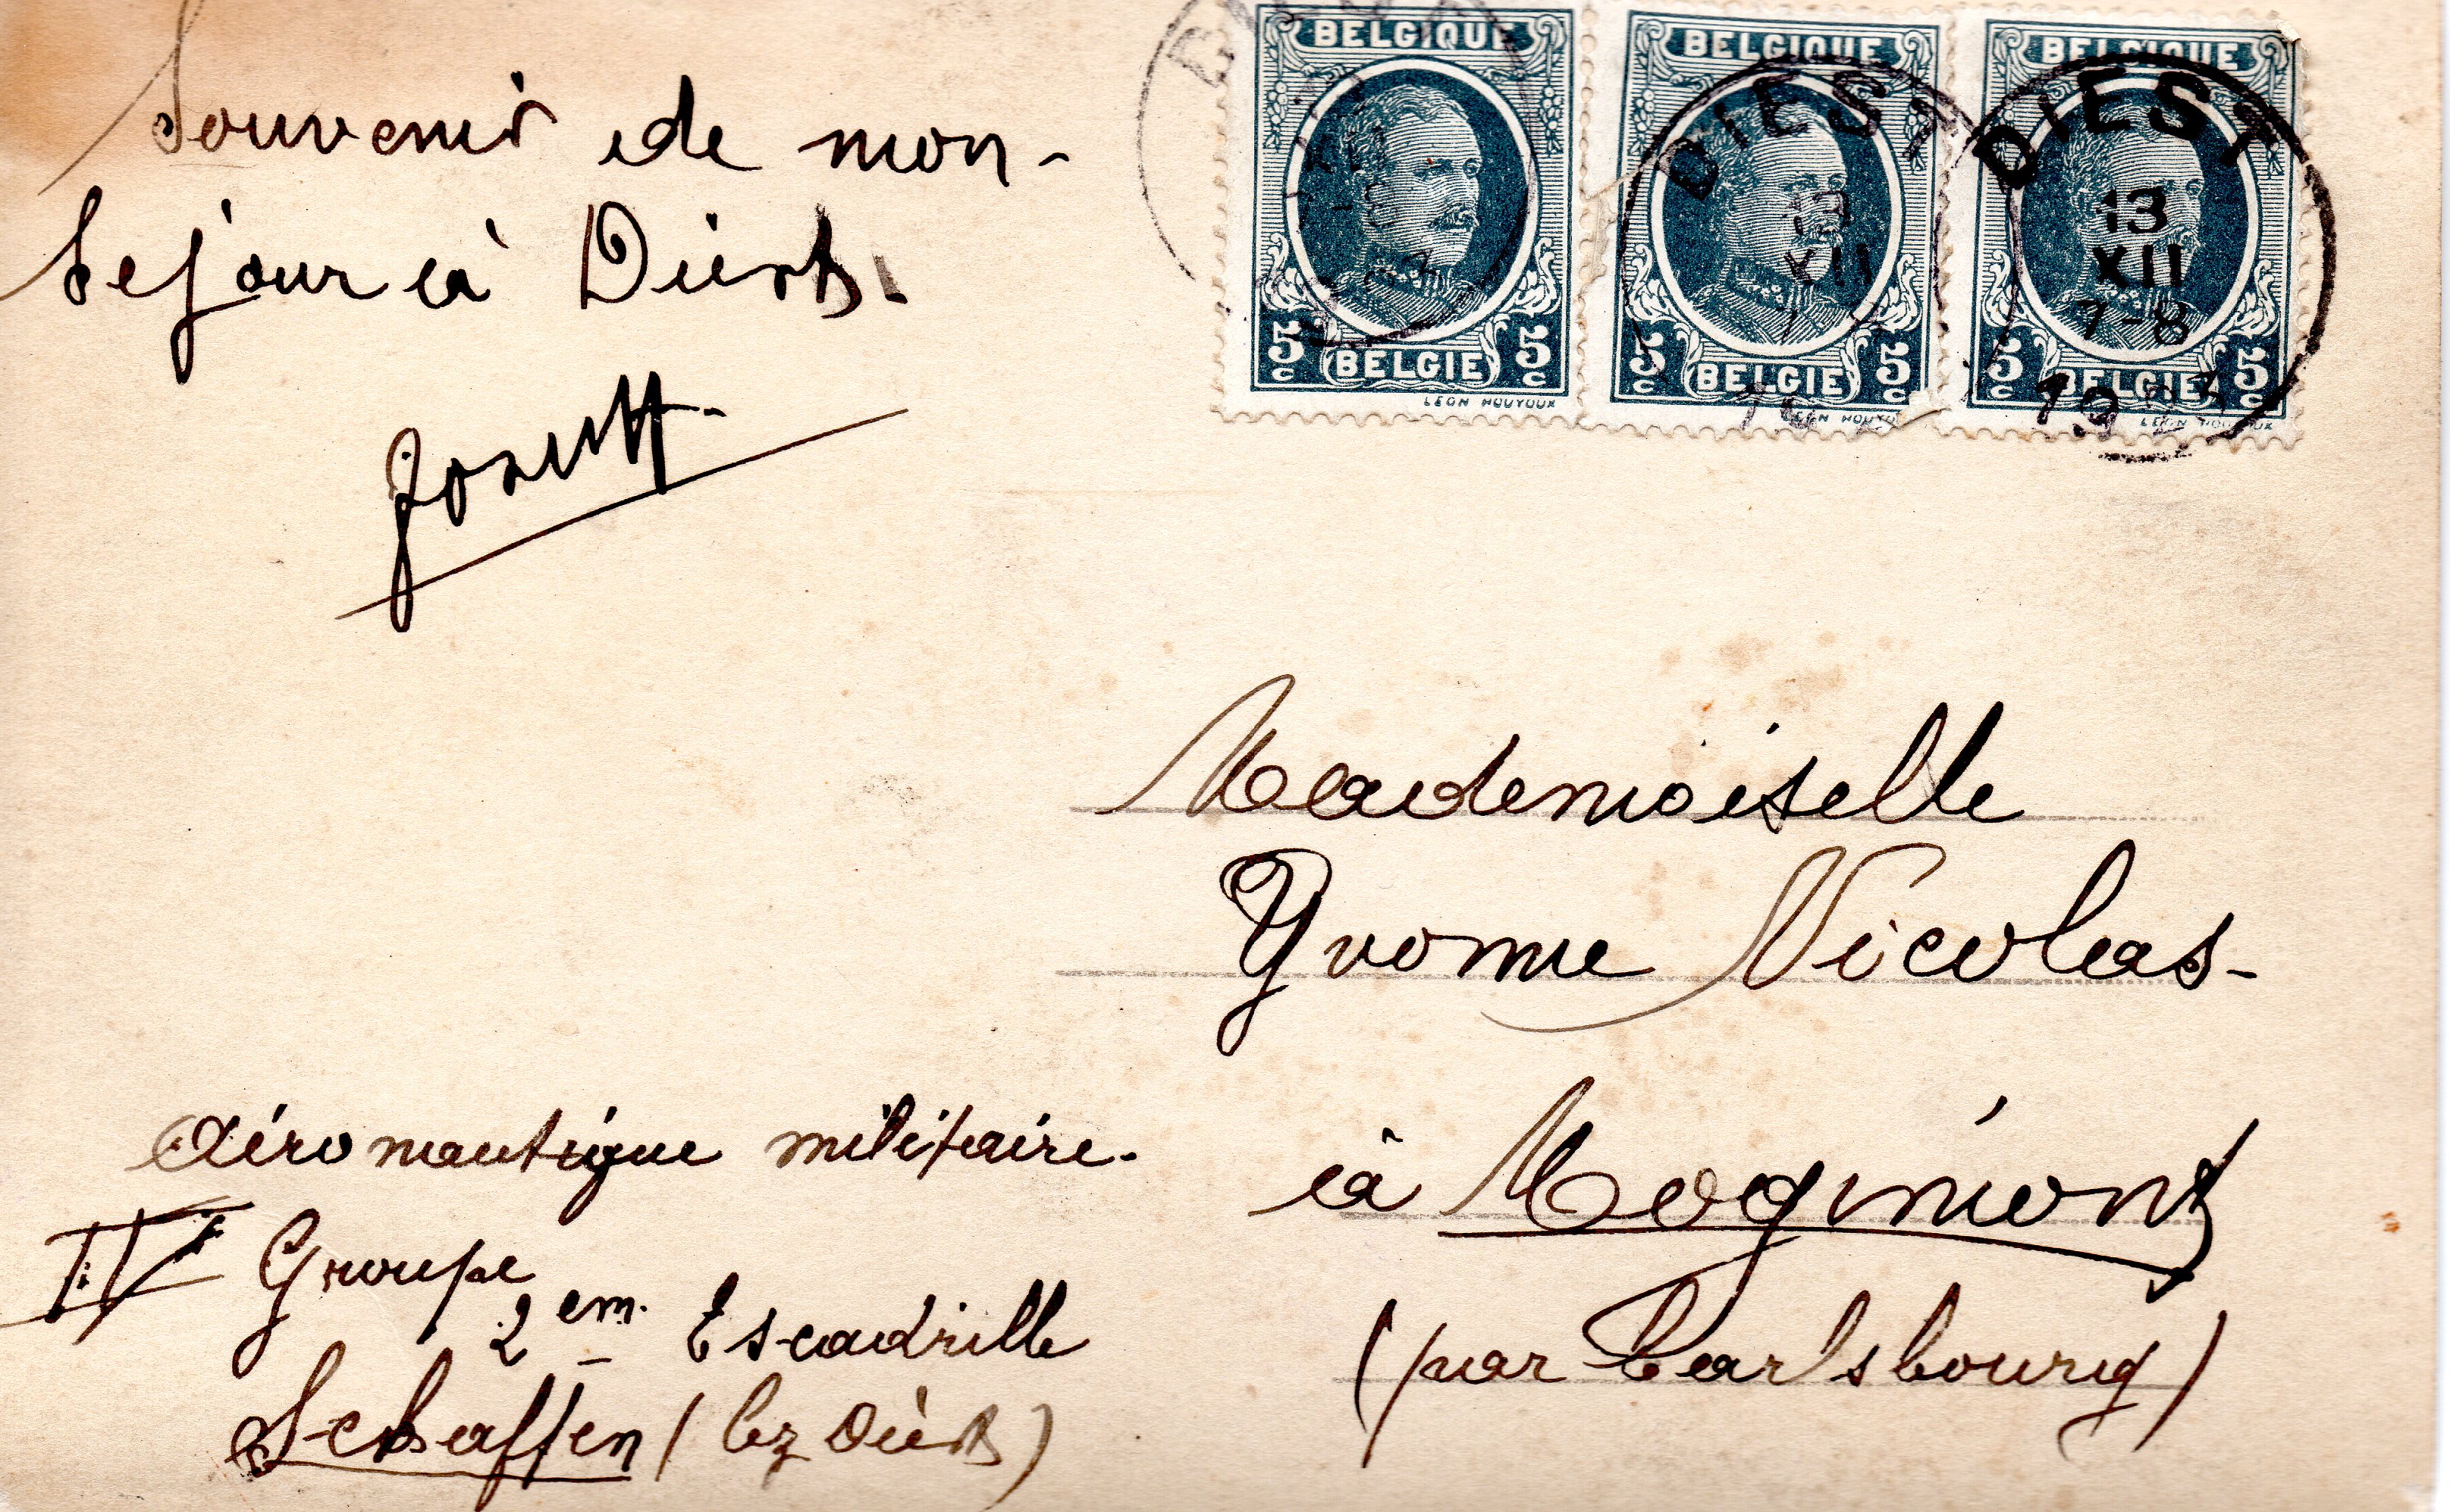 Souvenir de mon-
Sejour à Diest.
Joseph.
BELGIQUE
5c BELGIE 5c
LEON HOUYOUX
BELGIQUE
5c BELGIE 5c
LEON HOUYO
BELGIQUE
5c BELGIE 5c
LEON HOUYOUX
DIEST
13
XII
DIEST
13
XII
7-8
1923
Mademoiselle
Yvonne Nicolas-
à Mogimont
(par Carlsbourg)
Aéronautique militaire.
IV Groupe
2em. Escadrille
Schaffen (lez Diest)